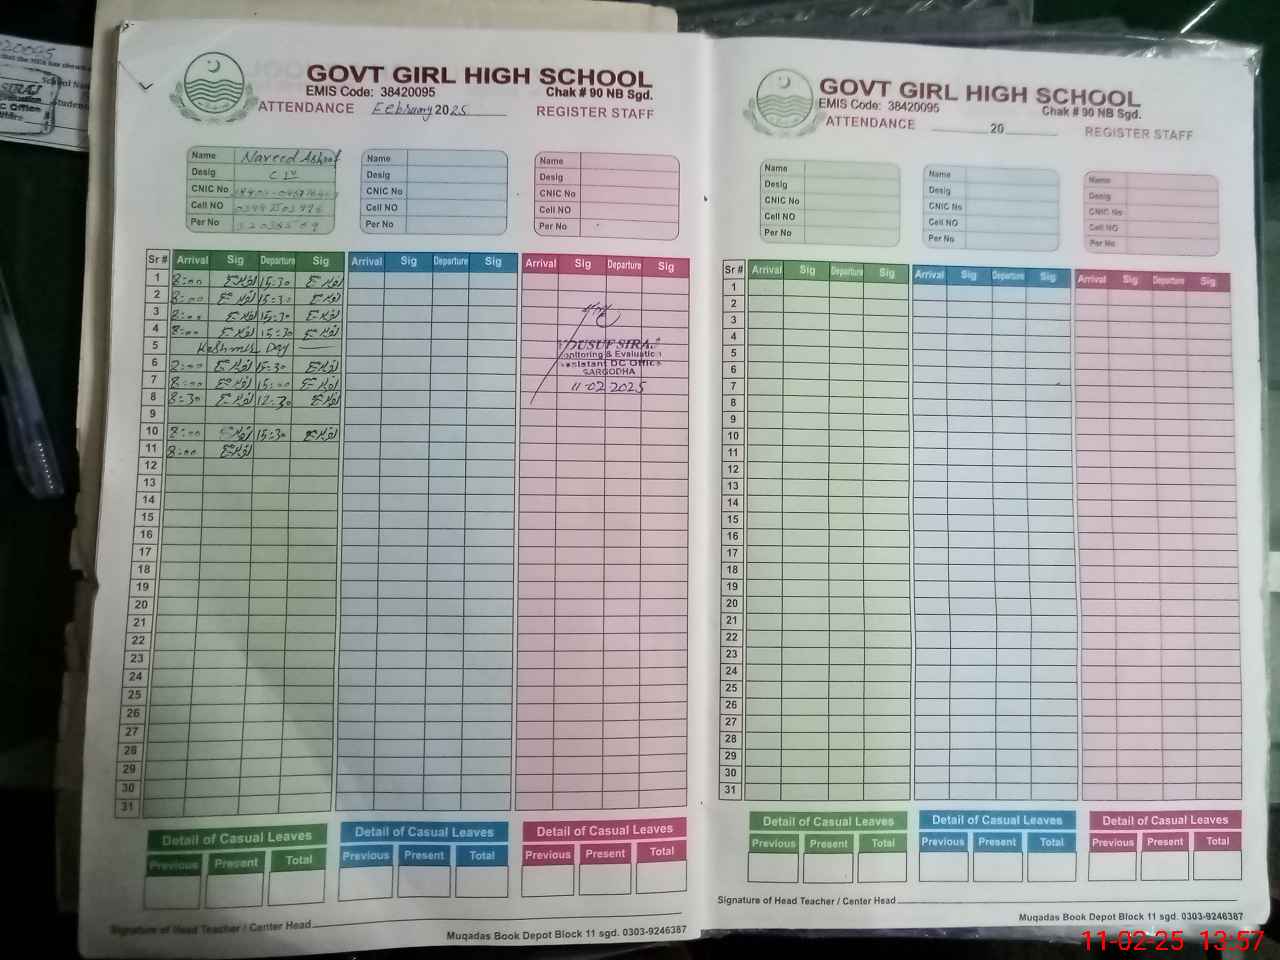 20095
GOVT GIRL HIGH SCHOOL
EMIS Code: 38420095 Chak # 90 NB Sgd.
ATTENDANCE February 2025 REGISTER STAFF
Name Naveed Ashraf
Desig C IV
CNIC No
Cell NO
Per No
Name
Desig
CNIC No
Cell NO
Per No
Name
Desig
CNIC No
Cell NO
Per No
Sr # Arrival Sig Departure Sig Arrival Sig Departure Sig Arrival Sig Departure Sig
1 8:00 15:30
2 8:00 15:30
3 8:00 15:30
4 8:00 15:30
5 Kashmir Day
6 8:00 15:30
7 8:00 15:00
8 8:30 12:30
9
10 8:00 15:30
11 8:00
12
13
14
15
16
17
18
19
20
21
22
23
24
25
26
27
28
29
30
31
YOUSUF SIRAJ
Monitoring & Evaluation
Assistant DC Office
SARGODHA
11-02-2025
Detail of Casual Leaves Detail of Casual Leaves Detail of Casual Leaves
Previous Present Total Previous Present Total Previous Present Total
Signature of Head Teacher / Center Head
Muqadas Book Depot Block 11 sgd. 0303-9246387
GOVT GIRL HIGH SCHOOL
EMIS Code: 38420095 Chak # 90 NB Sgd.
ATTENDANCE 20 REGISTER STAFF
Name
Desig
CNIC No
Cell NO
Per No
Name
Desig
CNIC No
Cell NO
Per No
Name
Desig
CNIC No
Cell NO
Per No
Sr # Arrival Sig Departure Sig Arrival Sig Departure Sig Arrival Sig Departure Sig
1
2
3
4
5
6
7
8
9
10
11
12
13
14
15
16
17
18
19
20
21
22
23
24
25
26
27
28
29
30
31
Detail of Casual Leaves Detail of Casual Leaves Detail of Casual Leaves
Previous Present Total Previous Present Total Previous Present Total
Signature of Head Teacher / Center Head
Muqadas Book Depot Block 11 sgd. 0303-9246387
11-02-25 13:57